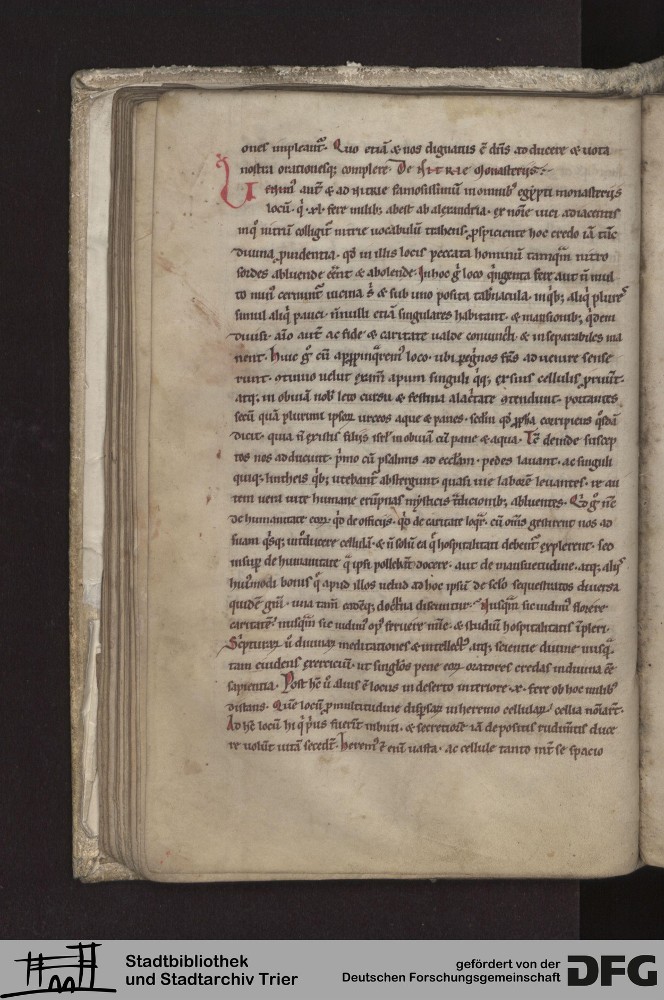 ones impleant᷑. Quo etiā & nos dignatus ē dn̄s adducere & uota
nostra orationesq; complere. De NITRIE Monasteriis.
Uenim᷒ aut̄ & ad NITRIE famosissimū in omnib᷒ egypti monasteriis
locū. q̇ .xl. fere milib; abest ab alexandria. ex noīe uici adiacentis
in q̇ nitrū colligit᷑ nitrie uocabulū trahens, ꝓspiciente hoc credo iā tūc
diuina ꝓuidentia. qd̄ in illis locis peccata hominū tamquā nitro
sordes abluende eēnt & abolende. In hoc g̊ loco q̇ngenta fere aut ñ mul
to min᷒ cernunt᷑ uicina s; & sub uno posita tab̄nacula. in q̇b; aliq̇ plures
simul aliq̇ pauci. nōnulli etiā singulares habitant. & mansionib; q̇dem
diuisi. aīo aut̄ ac fide & caritate ualde coniuncti. & inseparabiles ma
nent. Huic g̊ cū apꝓpinq̄rem᷒ loco. ubi peregrinos frs̄ aduenire sense
runt. ↄtinuo uelut examen apum singuli q̇q; ex suis cellulis ꝓruunt.
atq; in obuiā nob̄ leto cursu & festina alac̓tate ↄtendunt. portantes
secū quā plurimi ipsoꝝ urceos aque & panes. sedm̄ qd̄ ꝓpha corripiens q̇sdā
dicit. quia ñ existis filiis isrl̄ in obuiā cū pane & aqua. Tc̄ deinde suscep
tos nos adducunt. p̓mo cū psalmis ad ecctam. pedes lauant. ac singuli
quiq; lintheis q̇b; utebant᷑ abstergunt. quasi uie laborē leuantes. re au
tem uera uite humane erūpnas mysticis t̓dicionib; abluentes. Qd̄ g̊ nc̄
de humanitate eoꝝ. qd̄ de officiis. qd̄ de caritate loq̄r. cū om̄is gestirent nos ad
suam q̇sq; introducere cellulā. & ñ solū ea q̄ hospitalitati debent᷑ explerent. sed
insup̄ de humilitate q̄ ipsi pollebāt docere. aut de mansuetudine. atq; aliis
hui᷒modi bonis q̄ apud illos uelud ad hoc ipsū de sclo sequestratos diuersa
quidē gr̄a. una tam̄ eadēq; doct̓na discuntur. Nusquā sic uidim᷒ florere
caritatē. nusquā sic uidim᷒ op᷒ feruere mīe. & studiū hospitalitatis īpleri.
Sc̓pturaꝝ ů diuinaꝝ meditationes & intellect᷒. atq; scientie diuine nusq̄
tam euidens exercicium. ut singl̄os pene eoꝝ oratores credas in diuina eē
sapientia. Post hc̄ ů alius ē locus in deserto interiore .x. fere ob hoc milib᷒
distans. Quē locū ꝓ multitudine disꝑsaꝝ in heremo cellulaꝝ cellia nōiar̄t.
Ad hc̄ locū hi q̇ p̓us fuer̄t inbuti. & secretiorē iā depositis rudim̄tis duce
re uolūt uitā secedt̄. Heremus ē enī uasta. ac cellule tanto int̓ se spacio
Stadtbibliothek
und Stadtarchiv Trier
gefördert von der
Deutschen Forschungsgemeinschaft
DFG